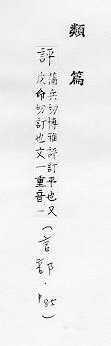 類篇
評 蒲兵切博雅評訂平也又
皮命切訂也文一重音一 (言部・P85)